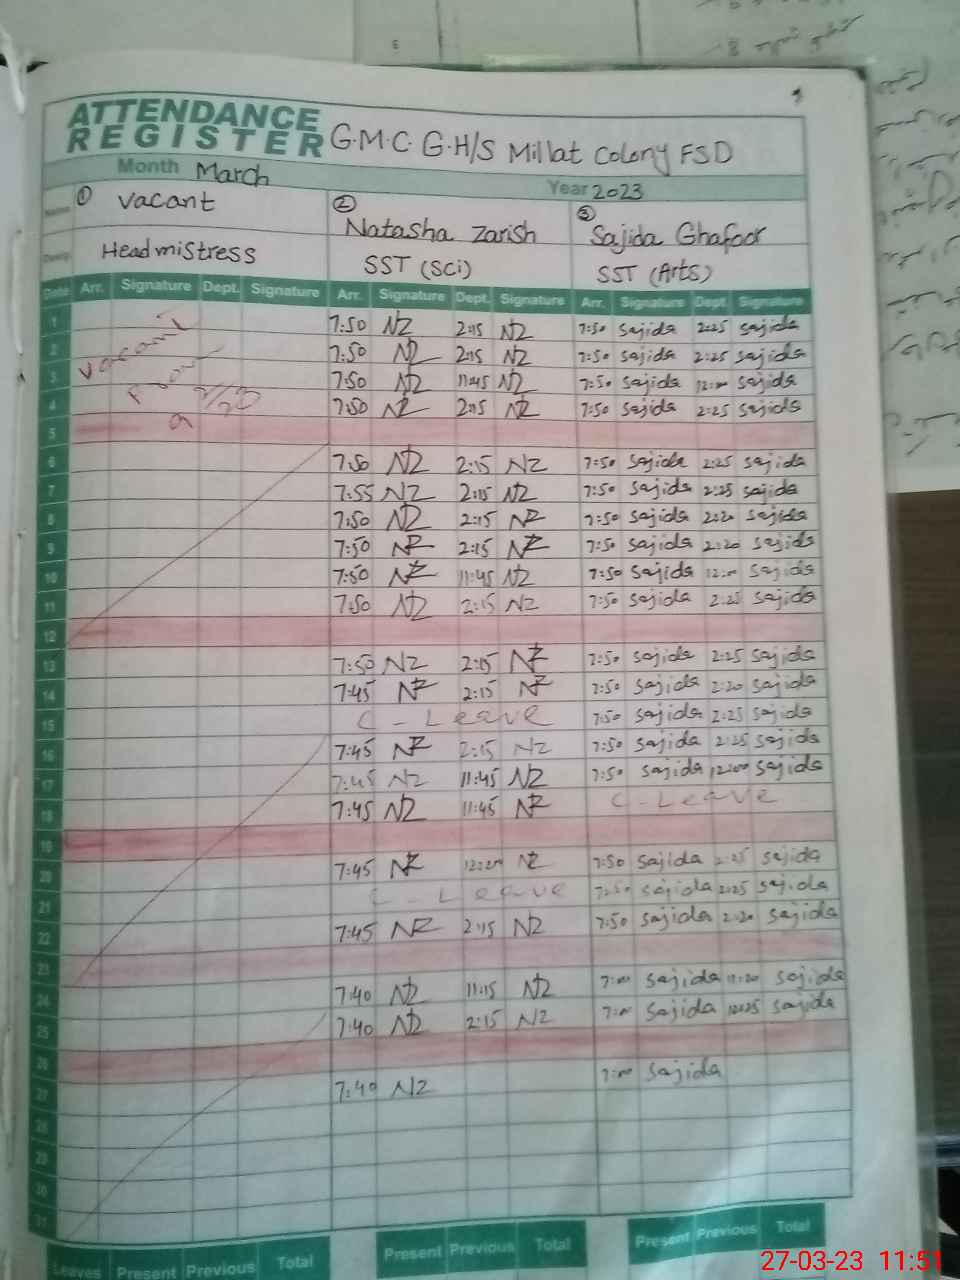 ATTENDANCE
REGISTER G.M.C. G.H/S Millat Colony FSD
Month March Year 2023
① Vacant ② Natasha Zarish ③ Sajida Ghafoor
Headmistress SST (Sci) SST (Arts)
Date Arr. Signature Dept. Signature Arr. Signature Dept. Signature Arr. Signature Dept. Signature
1 7:50 NZ 2:15 NZ 7:50 Sajida 2:25 Sajida
2 Vacant 7:50 NZ 2:15 NZ 7:50 Sajida 2:25 Sajida
3 From 7:50 NZ 11:45 NZ 7:50 Sajida 12:00 Sajida
4 7:50 NZ 2:15 NZ 7:50 Sajida 2:25 Sajida
5
6 7:50 NZ 2:15 NZ 7:50 Sajida 2:25 Sajida
7 7:55 NZ 2:15 NZ 7:50 Sajida 2:25 Sajida
8 7:50 NZ 2:15 NZ 7:50 Sajida 2:20 Sajida
9 7:50 NZ 2:15 NZ 7:50 Sajida 2:20 Sajida
10 7:50 NZ 11:45 NZ 7:50 Sajida 12:00 Sajida
11 7:50 NZ 2:15 NZ 7:50 Sajida 2:25 Sajida
12
13 7:50 NZ 2:15 NZ 7:50 Sajida 2:25 Sajida
14 7:45 NZ 2:15 NZ 7:50 Sajida 2:20 Sajida
15 C-Leave 7:50 Sajida 2:25 Sajida
16 7:45 NZ 2:15 NZ 7:50 Sajida 2:25 Sajida
17 7:45 NZ 11:45 NZ 7:50 Sajida 12:00 Sajida
18 7:45 NZ 11:45 NZ C-Leave
19
20 7:45 NZ NZ 7:50 Sajida 2:25 Sajida
21 C-Leave 7:50 Sajida 2:25 Sajida
22 7:45 NZ 2:15 NZ 7:50 Sajida 2:20 Sajida
23
24 7:40 NZ 11:15 NZ 7:00 Sajida 11:20 Sajida
25 7:40 NZ 2:15 NZ 7:00 Sajida Sajida
26
27 7:40 NZ 7:00 Sajida
28
29
30
31
Leaves Present Previous Total Present Previous Total Present Previous Total
27-03-23 11:51